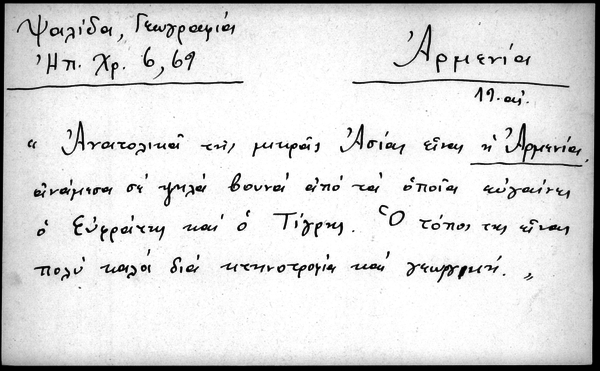 Ψαλίδα, Γεωγραφία
Ἠπ. Χρ. 6, 69
Ἀρμενία
19. αἰ.
« Ἀνατολικὰ τῆς μικρᾶς Ἀσίας εἶναι ἡ Ἀρμενία,
ἀνάμεσα σὲ ψηλὰ βουνά ἀπό τὰ ὁποῖα εὐγαίνει
ὁ Εὐφράτης καί ὁ Τίγρης. Ὁ τόπος της εἶναι
πολύ καλά διά κτηνοτροφία καί γεωργική. »